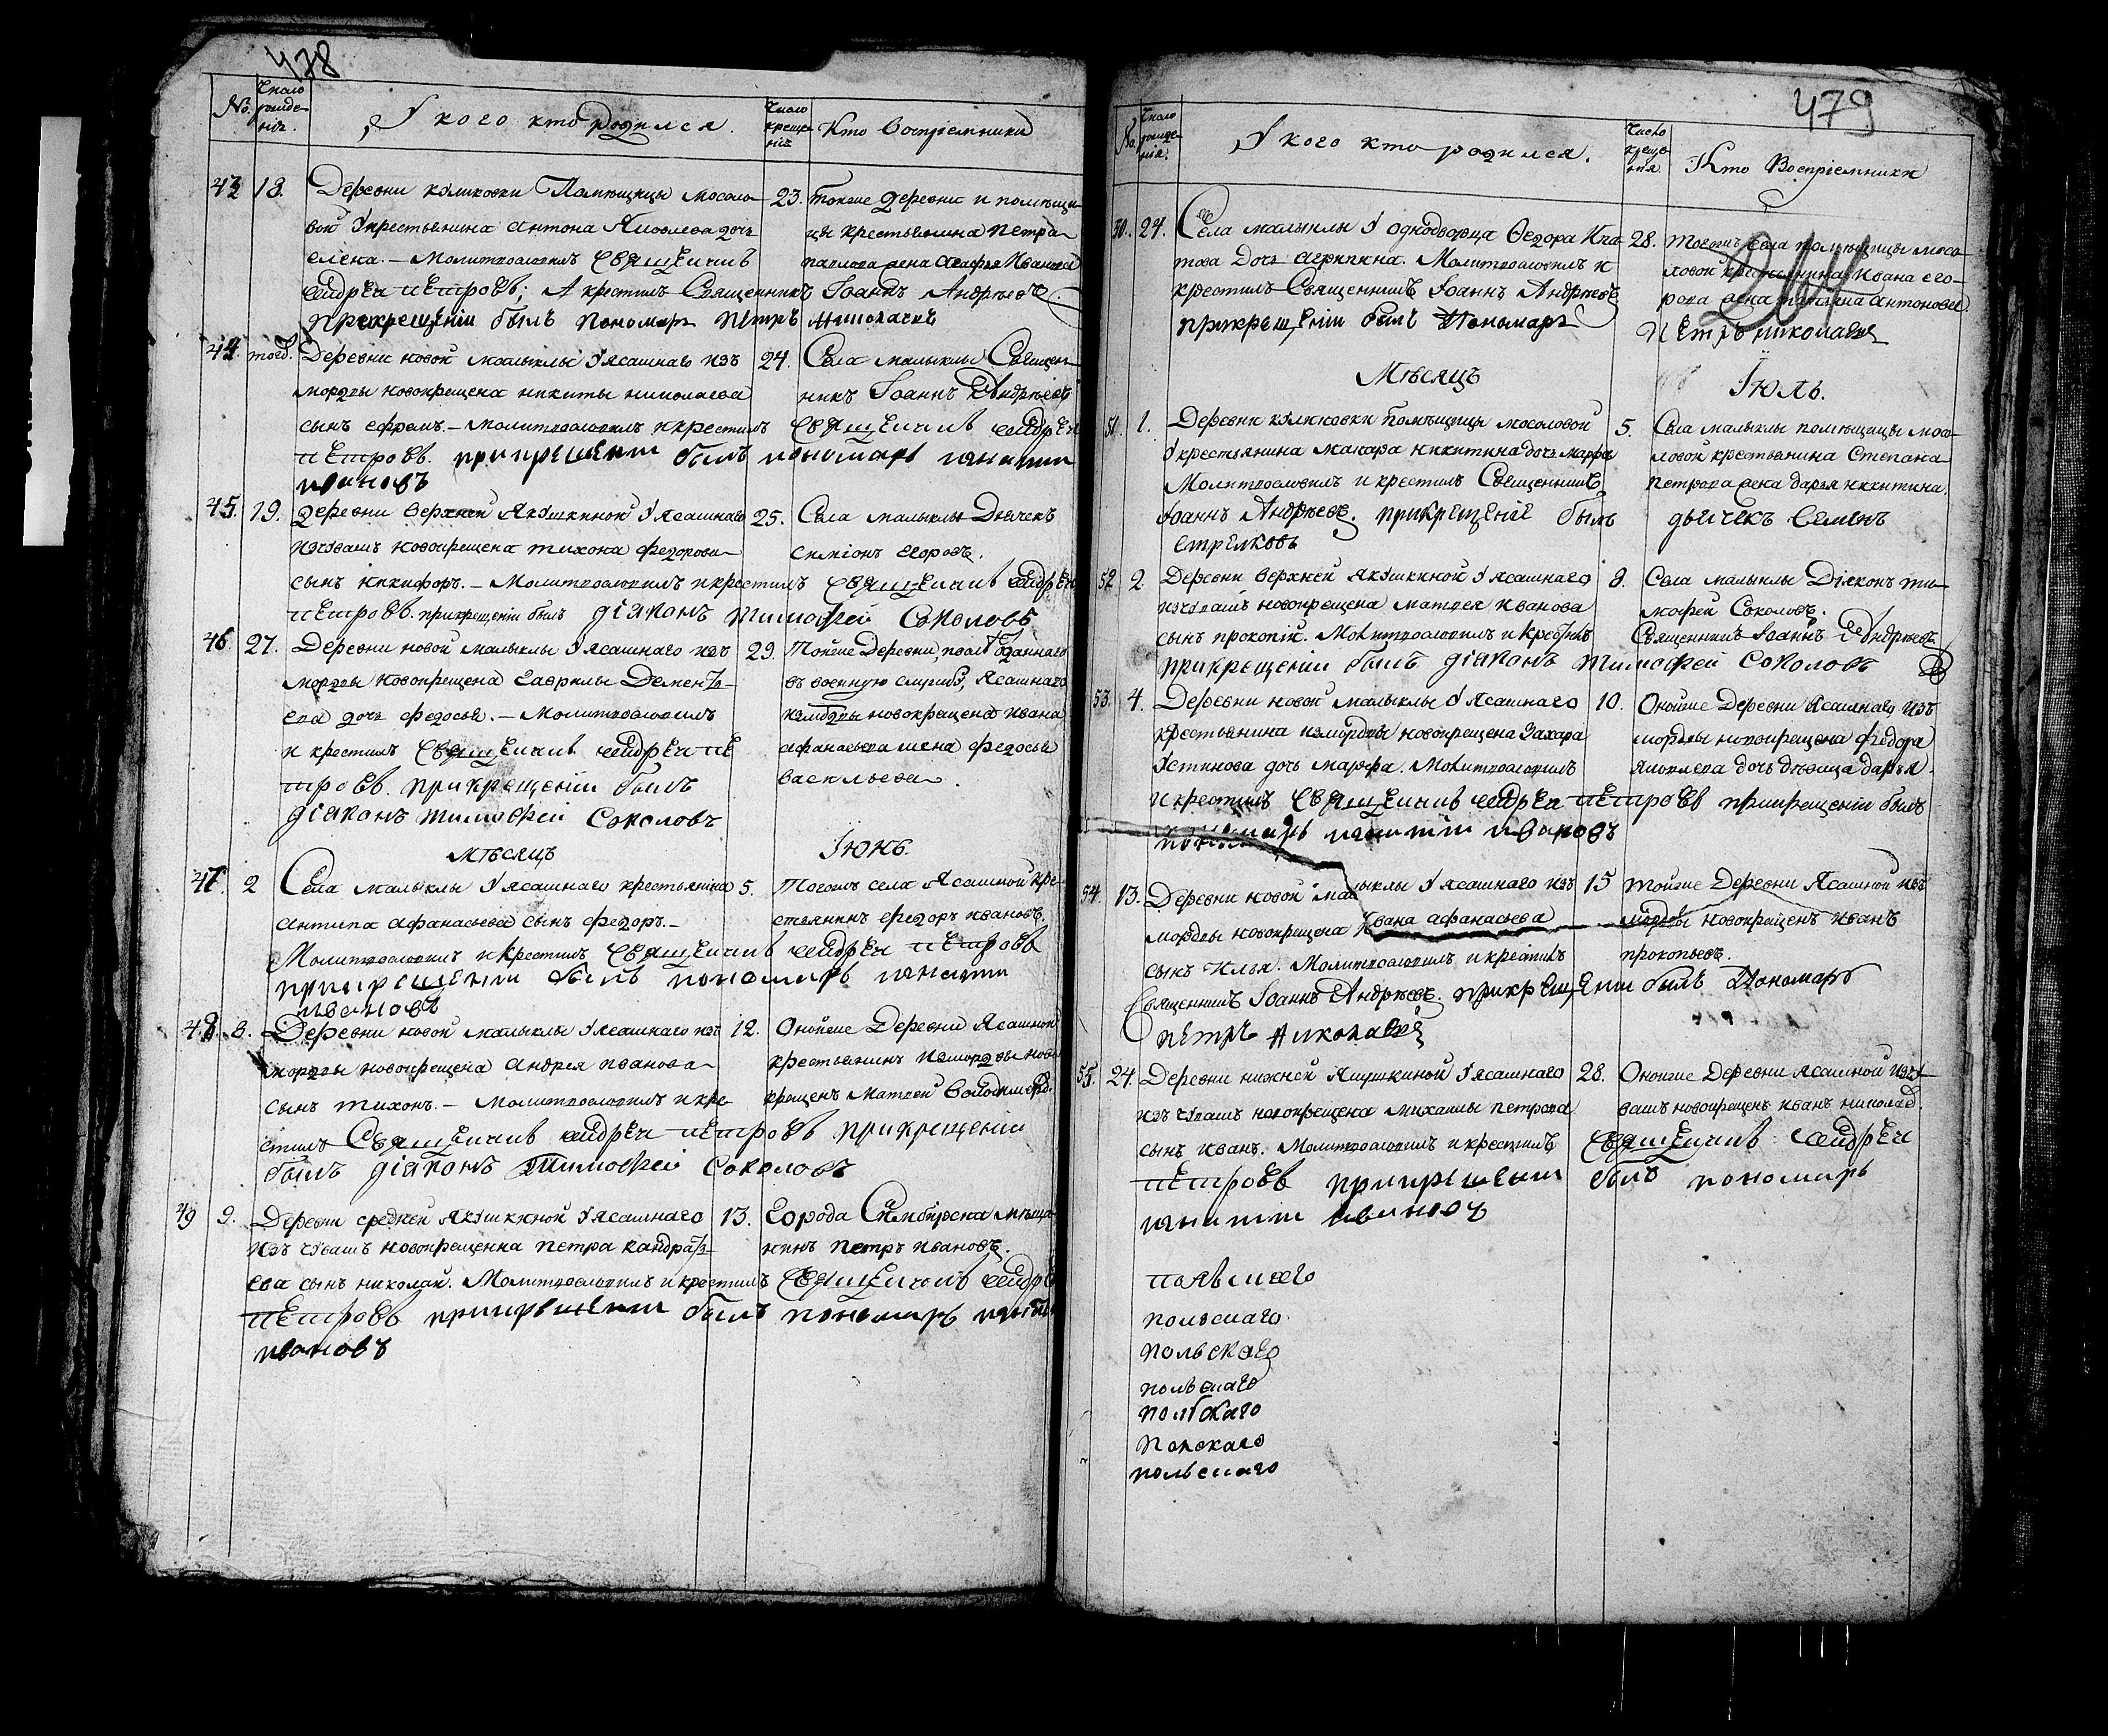 478
№.
Число рожде-
нія.
У кого кто родился.
Число
креще-
нія
Кто воспріемники
43 18. Деревни куликовки Помѣщицы мосоло- 23. тойже деревни и помѣщи-
вой у крестьянина антона Яковлева дочь цы крестьянина петра
елена. – Молитвословилъ священникъ павлова жена агафья Иванова
андреи петровъ; А крестилъ Священникъ Іоаннъ Андрѣевъ.
прикрещеніи былъ пономарь Петръ Николаевъ
44. тогож. Деревни новой малыклы у ясашнаго изъ 24. Села малыклы Священ-
мордвы новокрещена никиты николаева никъ Іоаннъ Андрѣевъ
сынъ ефремъ. – Молитвословилъ и крестилъ священникъ андреи
петровъ. прикрещении былъ пономарь игнатии
ивановъ
45. 19. деревни верхней Якушкиной у ясашнаго 25. Села малыклы Дьячекъ
изчувашъ новокрещена тихона федорова симіонъ егоровъ.
сынъ никифоръ. – Молитвословилъ и крестилъ священникъ андреи
петровъ. прикрещеніи былъ діаконъ Тимофей Соколовъ
46. 27. Деревни новой малыклы у ясашнаго изъ 29. Тойже Деревни, отданнаго
мордвы новокрещена гаврилы Демен- въ военную службу, Ясашнаго
ева дочь федосья. – Молитвословилъ измордвы новокрещена ивана
и крестилъ священникъ андреи пе афанасьева жена федосья
тровъ. прикрещеніи былъ васильева.
діаконъ тимофей Соколовъ
мѣсяцъ Іюнь.
47. 2 Села малыклы у ясашнаго крестьянина 5. Тогожъ села Ясашной кре-
антипа афанасьева сынъ федоръ. – стьянинъ федоръ ивановъ.
Молитвословилъ и крестилъ священникъ андреи петровъ
прикрещении былъ пономарь игнатии
ивановъ
48. 8. Деревни новой малыклы у ясашнаго изъ 12. Онойже Деревни Ясашной
мордвы новокрещена андрея иванова крестьянинъ измордвы ново
сынъ тихонъ. – Молитвословилъ и кре- крещенъ матвей володимеровъ.
стилъ Священникъ андреи петровъ прикрещеніи
былъ діаконъ Тимофей Соколовъ
49 9. Деревни средней якушкиной у ясашнаго 13. города Симбирска мѣща-
изъ чувашъ новокрещенна петра кандрать- нинъ петръ ивановъ.
ева сынъ николай. Молитвословилъ и крестилъ священникъ андреи
петровъ прикрещении былъ пономарь игнати
ивановъ
479
264
№.
Число рожде-
нія.
У кого кто родился.
Число
креще-
нія
Кто Воспріемники
50. 24. Села малыклы у однодворца Ѳедора Ипа- 28. тогожъ села помѣщицы мосо-
това Дочь агрипина. Молитвословилъ и ловой крестьянина ивана его-
крестилъ Священникъ Іоаннъ Андрѣевъ рова жена татьяна антонова.
прикрещеніи былъ Пономарь Петръ николаевъ
Мѣсяцъ Іюль.
51. 1. Деревни куликовки Помѣщицы мосоловой 5. Села малыклы помѣщицы мосо-
у крестьянина макара никитина дочь марфа ловой крестьянина Степана
Молитвословилъ и крестилъ Священникъ петрова жена дарья никитина.
Іоаннъ Андрѣевъ. прикрещеніе былъ дьячекъ Семенъ
Стрелковъ
52 2 Деревни верхней якушкиной у ясашнаго 8. Села малыклы Діяконъ ти-
изчувашъ новокрещена матвея иванова мофей Соколовъ.
сынъ прокопій. Молитвословилъ и крестилъ Священникъ Іоаннъ Андрѣевъ
прикрещеніи былъ діяконъ тимофей Соколовъ
53. 4. Деревни новой малыклы у Ясашнаго 10. Онойже Деревни Ясашнаго изъ
крестьянина измордвы новокрещена Захара мордвы новокрещена федора
Устинова дочь марфа. Молитвословилъ яковлева дочь дѣвица дарья.
и крестилъ священникъ андреи петровъ прикрещеніи былъ
пономарь игнатіи ивановъ
54. 13. Деревни новой малыклы у ясашнаго изъ 15 тойже Деревни Ясашной изъ
мордвы новокрещена ивана афанасьева мордвы новокрещенъ иванъ
сынъ илья. Молитвословилъ и крестилъ прокопьевъ.
Священникъ Іоаннъ Андрѣевъ. прикрещеніи былъ Пономарь
петръ Николаевъ
55. 24. Деревни нижней Якушкиной у ясашнаго 28. Онойже Деревни Ясашной изчу-
изъ чувашъ новокрещена михаилы петрова вашъ новокрещенъ иванъ николаев.
сынъ иванъ. Молитвословилъ и крестилъ священникъ андреи
петровъ прикрещении былъ пономарь
игнатии ивановъ
польскаго
польскаго
польскаго
польскаго
польскаго
польскаго